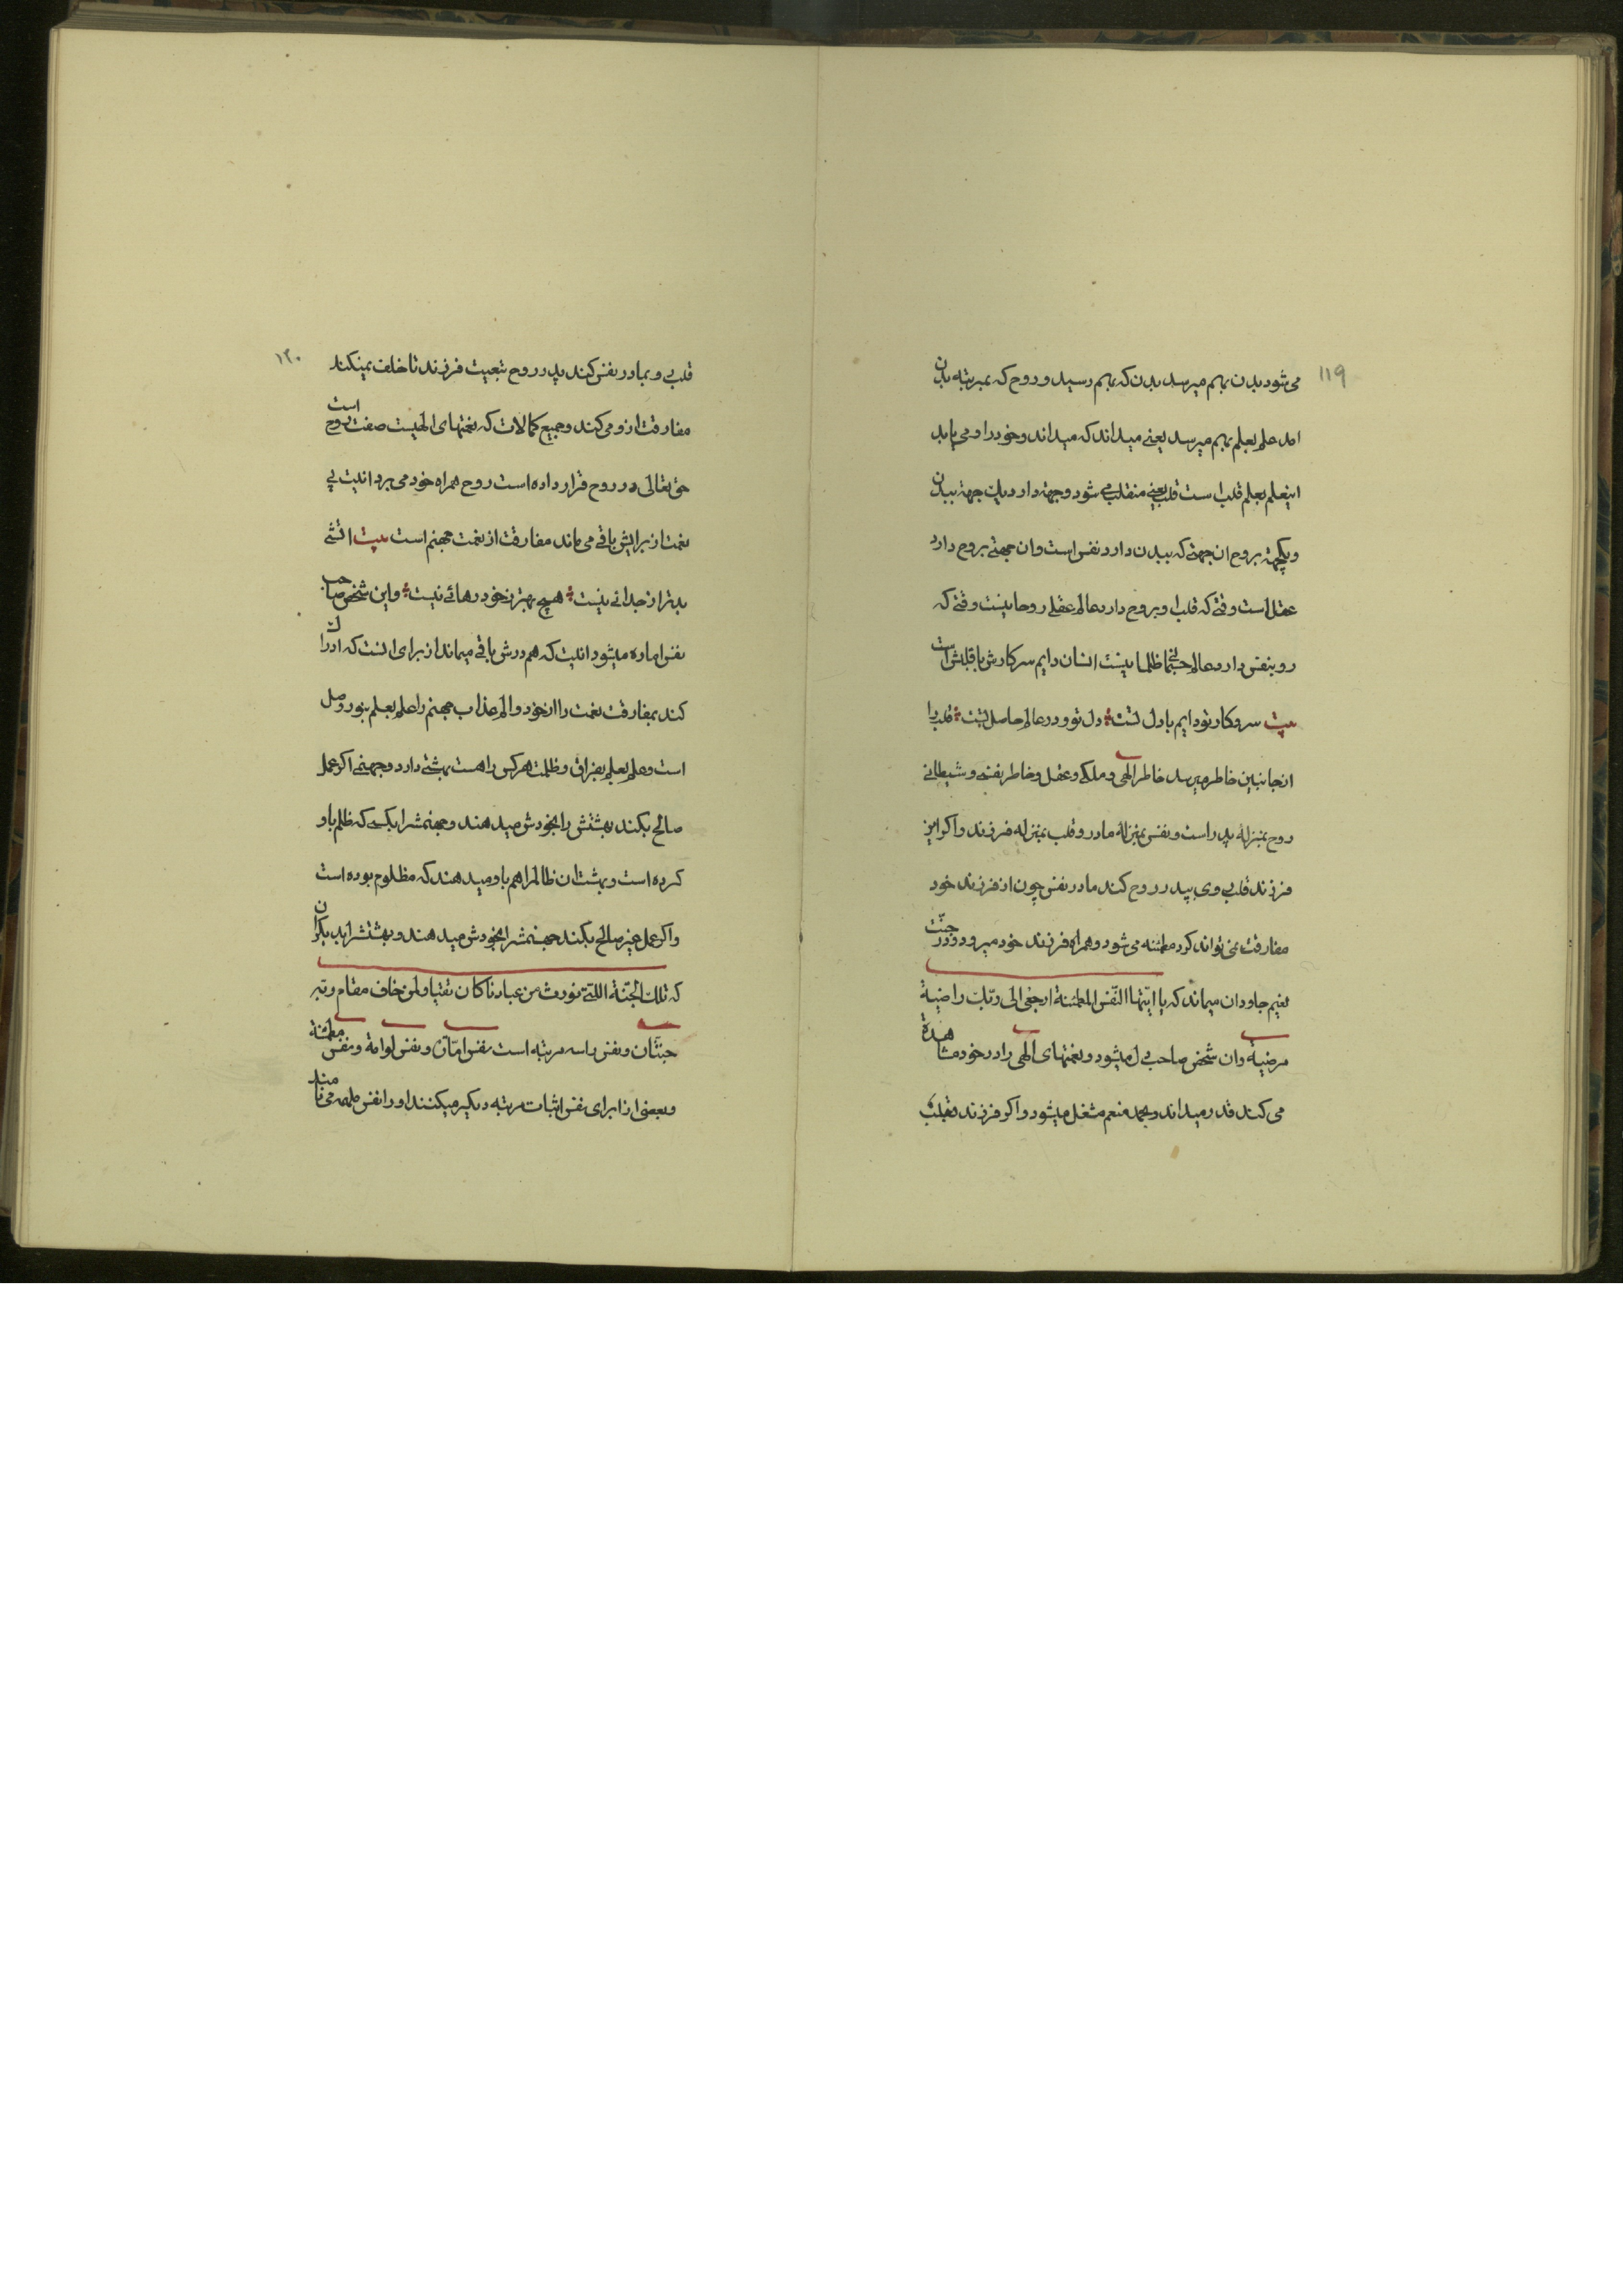 ۱۱۹
می شود بدن بهم میرسد بدن که بهم رسید و روح که بمرتبه بدن
امد علم بعلم بهم میرسد یعنی میداند که میداند و خود را و می یابد
اینعلم بعلم قلب است قلب یعنی منقلب می شود و جهة دارد یک جهة ببدن
و یکجهة بروح ان جهتی که ببدن دارد نفس است وان جهتی بروح دارد
عقل است وقتی که قلب او بروح دارد عالم عقلی روحانیست وقتی که
رو بنفس دارد عالم ظلمانیست انسان دایم سر کارش با قلبش است
بیت سر وکار تو دایم با دل تست دل تو و در عالم حاصل تست قلب را
از جانبین خاطر میرسد خاطر الهی و ملکی و عقل و خاطر نفسی و شیطانی
روح بمنزله پدر است و نفس بمنزلهٔ مادر و قلب بمنزله فرزند و اکر این
فرزند قلبی وی بپدر روح کند مادر نفس چون از فرزند خود
مفارقت نمی تواند کرد مطمئنه می شود و همراه فرزند خود میرود و در جنّت
نعیم جاودان میماند که یا ایّتها النّفس المطمئنة ارجعی الی ربّک راضیة
مرضیة و ان شخص صاحب دل میشود و نعمتهای الهی را در خود مشاهدة
می کند قدر میداند و بحمد منعم مشغل میشود و اکر فرزند قلب
۱۲۰
قلبی و بمادر نفس کند پدر روح تبعیت فرزند ناخلف نمیکند
مفارقت ازو می کند و جمیع کمالات که نعمتهای الهیست صفت روح است
حق تعالی در روح قرار داده است روح همراه خود می برد انیت بی
نعمت از برایش باقی می ماند مفارقت از نعمت جهنم است بیت اتشی
بدتر از جدائی نیست هیچ بهتر ز خود رهائی نیست و این شخص صاحب
نفس اماره میشود انیت که هم درش باقی میماند از برای انست که ادراک
کند بمفارقت نعمت را از خود و الم عذاب جهنم را علم بعلم بنور وصل
است و علم بعلم بفراق و ظلمت هرکس را هست بهشتی دارد و جهنمی اکر عمل
صالح بکند بهشتش را بخودش میدهند و جهنمشرا بکسی که ظلم باو
کرده است و بهشت ان ظالمرا هم باو میدهند که مظلوم بوده است
و اکر عمل غیر صالح بکند جهنمشرا بخودش میدهند و بهشتشرا بدیکران
که تلک الجنّة اللتی نورث من عبادنا کان تقیا و لمن خاف مقام ربّه
جنتّان و نفس را سه مرتبه است نفس امّاره و نفس لوامة و نفس مطمئنة
و بعضی از ا برای نفس اثبات مرتبه دیکر میکنند او را نفس ملهمه می نامند